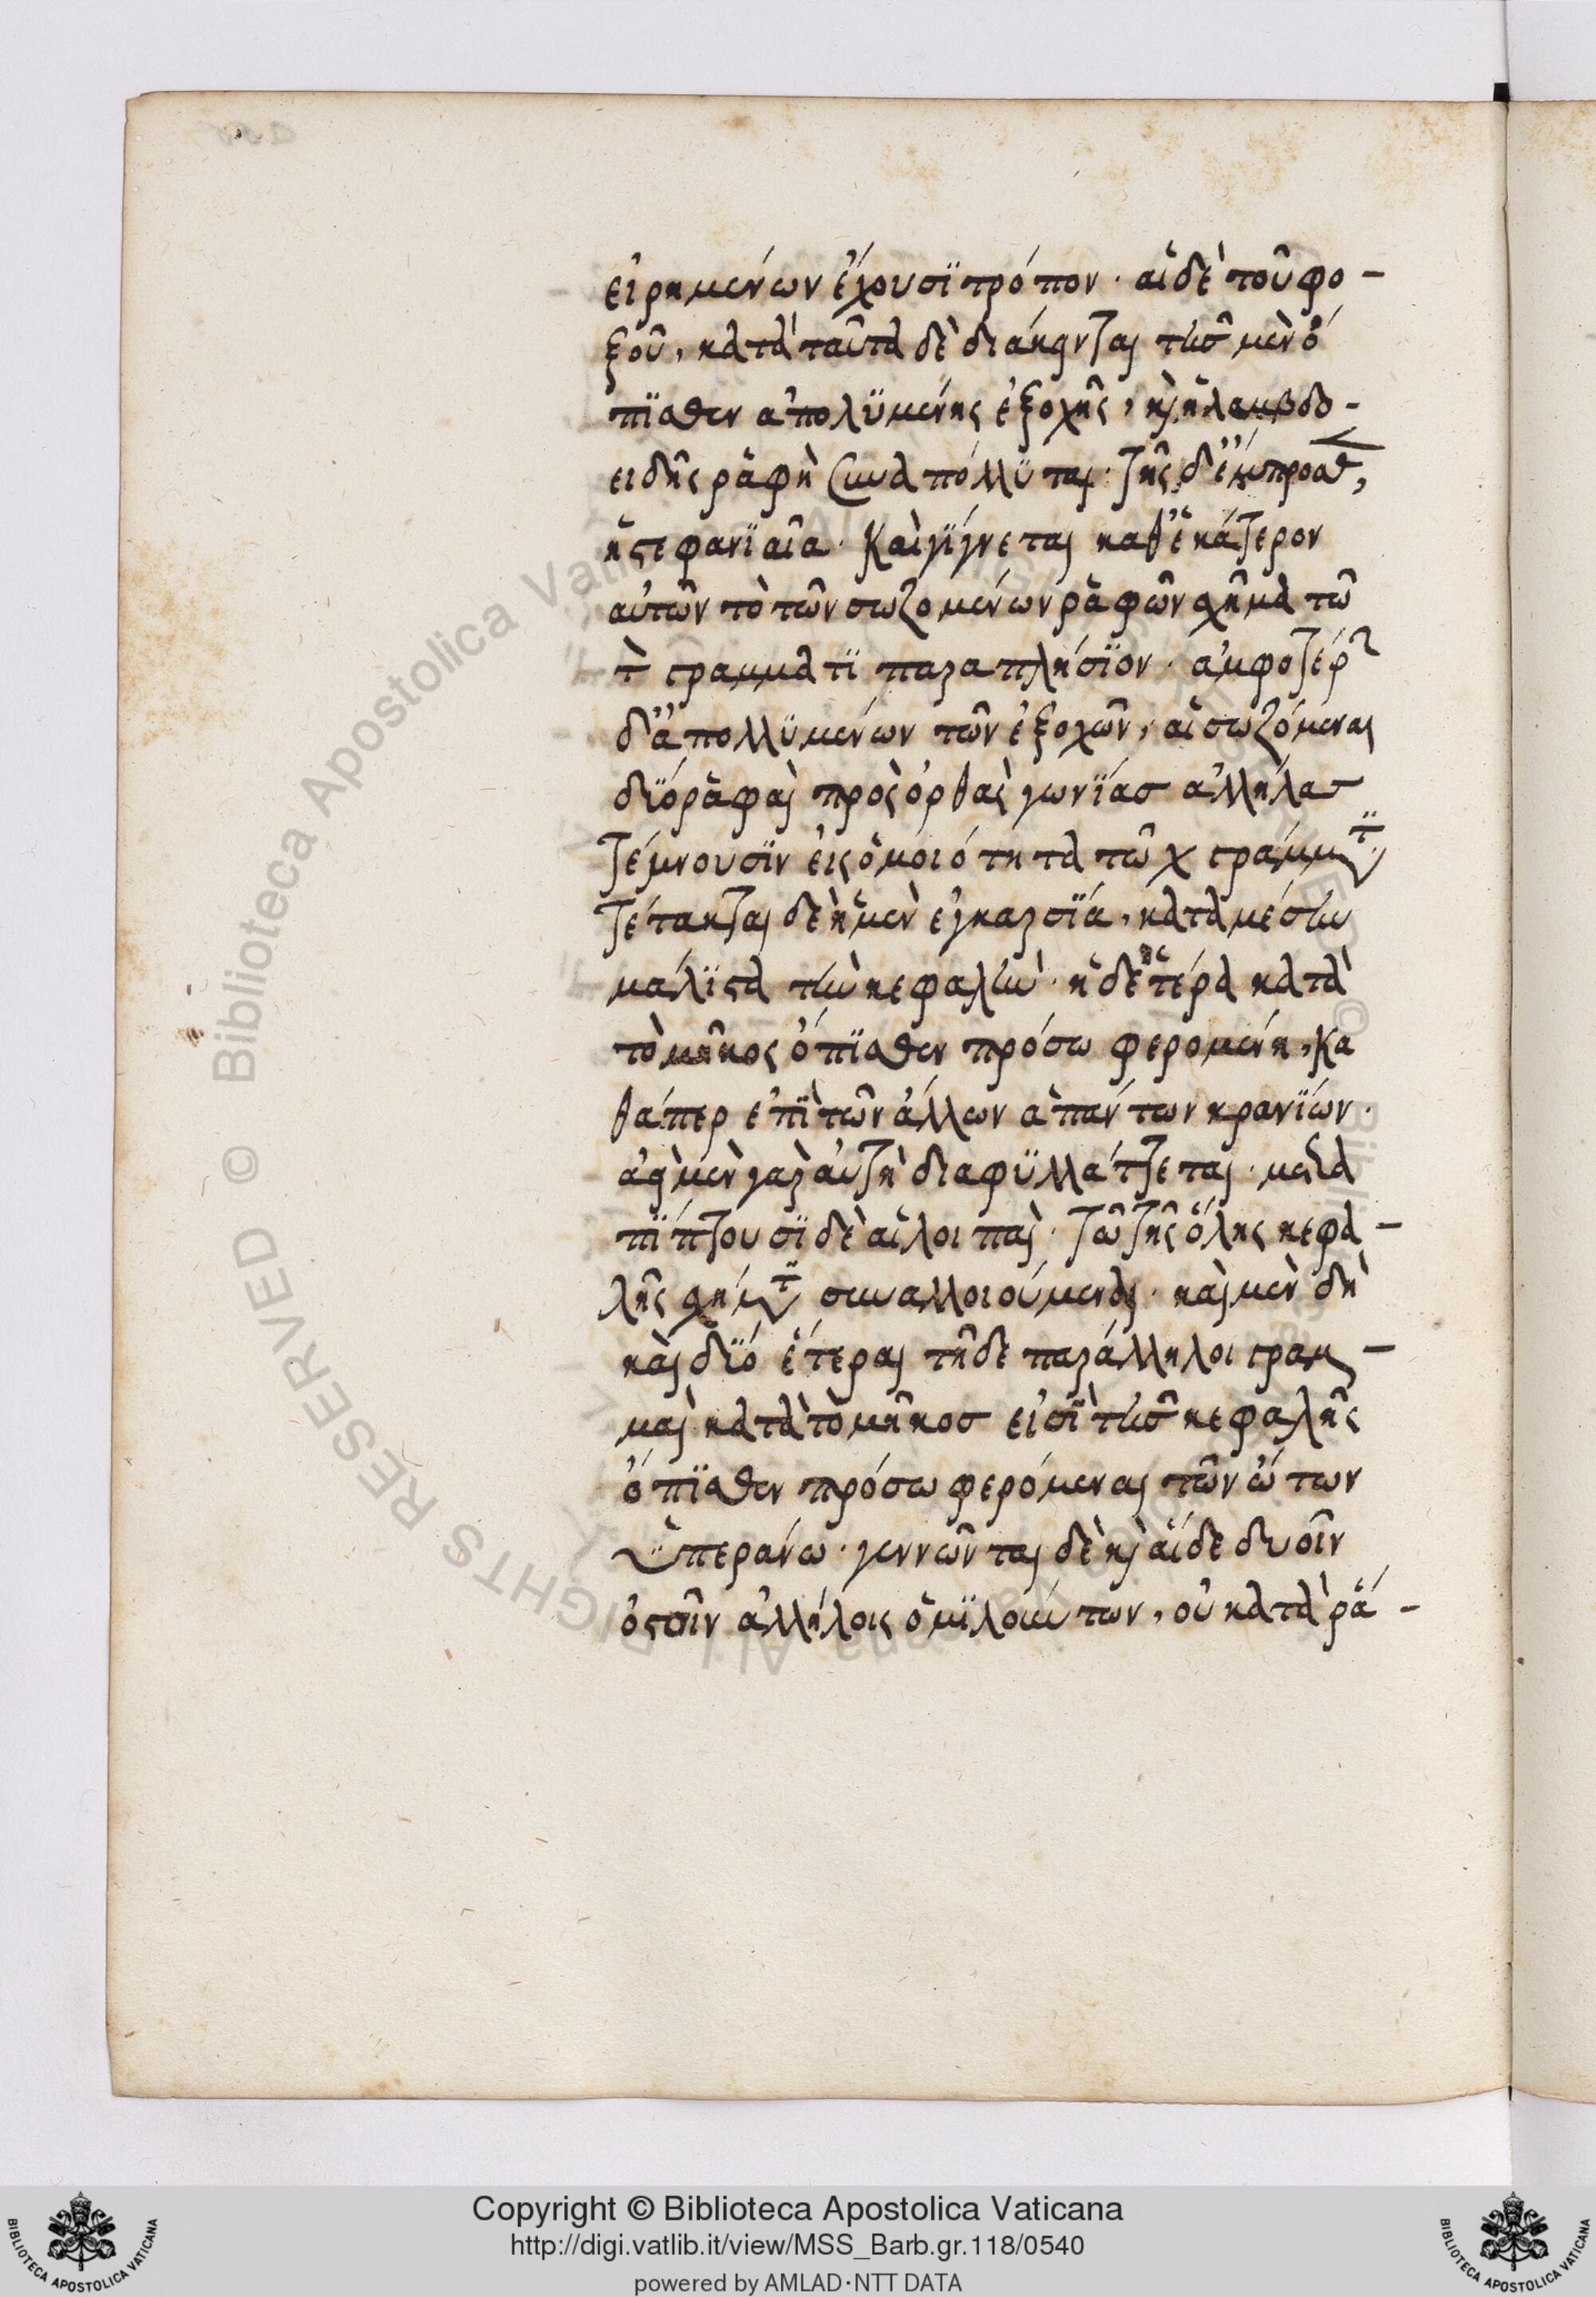 εἰρημένων ἔχουσϊ τρόπον· αἱ δὲ τοῦ φο-
ξοῦ, κατὰ ταῦτα δὲ διάκεινται τῆσ μὲν ὄ
πϊσθεν απολϋμένης ἐξοχῆς, κὶ ἡ λαμβδο-
ειδὴς ῥαφὴ συναπόλλϋται· τῆς δ' ἔμπροσθ,
ἡ στεφανϊαῖα· Καὶ γϊγνεται καθ' ἑκάτερον
αὐτῶν τὸ τῶν σωζομένων ῥαφῶν σχῆμα τῶ
τ̀ γραμματϊ παραπλήσϊον· ἀμφοτέρ
δ' ἀπολλϋμένων τῶν ἐξοχῶν, αἱ σωζόμεναι
δϋό ῥαφαὶ πρὸς ὀρθὰς γωνϊάσ ἀλλήλασ
τέμνουσϊν εἰς ὁμοιότητα τῶ χ γράμμτ.
τέτακται δὲ ἡ μὲν ἐγκαρσϊά, κατα μέσην
μάλϊστα τὴν κεφαλὴν· ἡ δὲ ἡτέρα κατὰ
τὸ μῆκος ὄπϊσθεν πρόσω φερομένη, Κα
θάπερ ἐπϊ τῶν ἄλλων ἁπάντων κρανϊων·
ἀεὶ μὲν γαρ αὐτὴ διαφϋλλάττεται· μετα
πϊπτουσϊ δὲ αἱ λοιπαὶ· τῶ τῆς ὅλης κεφα-
λῆς σχήμτ συναλλοιούμεναι· καὶ μὲν δὴ
καὶ δϋό ἕτεραι τῆδε παράλληλοι γραμ-
μαὶ κατὰ τὸ μῆκοσ εἰσϊ τῆσ κεφαλῆς
ὄπϊσθεν πρόσω φερόμεναι τῶν ὤτων
ϋπεράνω· γεννῶνται δὲ κὶ αἵδε δυοῖν
ὀστοῖν ἀλλήλοις ὁμϊλούντων, οὐ κατὰ ῥα-
Copyright © Biblioteca Apostolica Vaticana
http://digi.vatlib.it/view/MSS_Barb.gr.118/0540
powered by AMLAD·NTT DATA